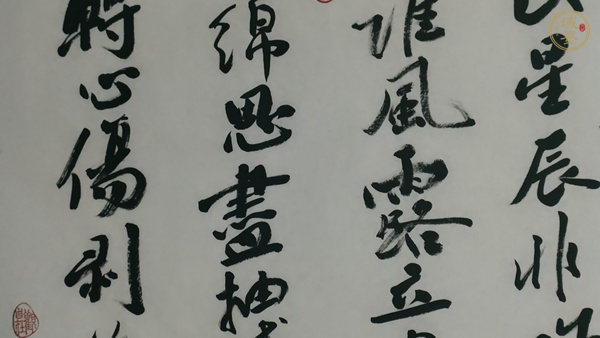 星辰非
誰風露立
綿思盡抽
轉心傷剥